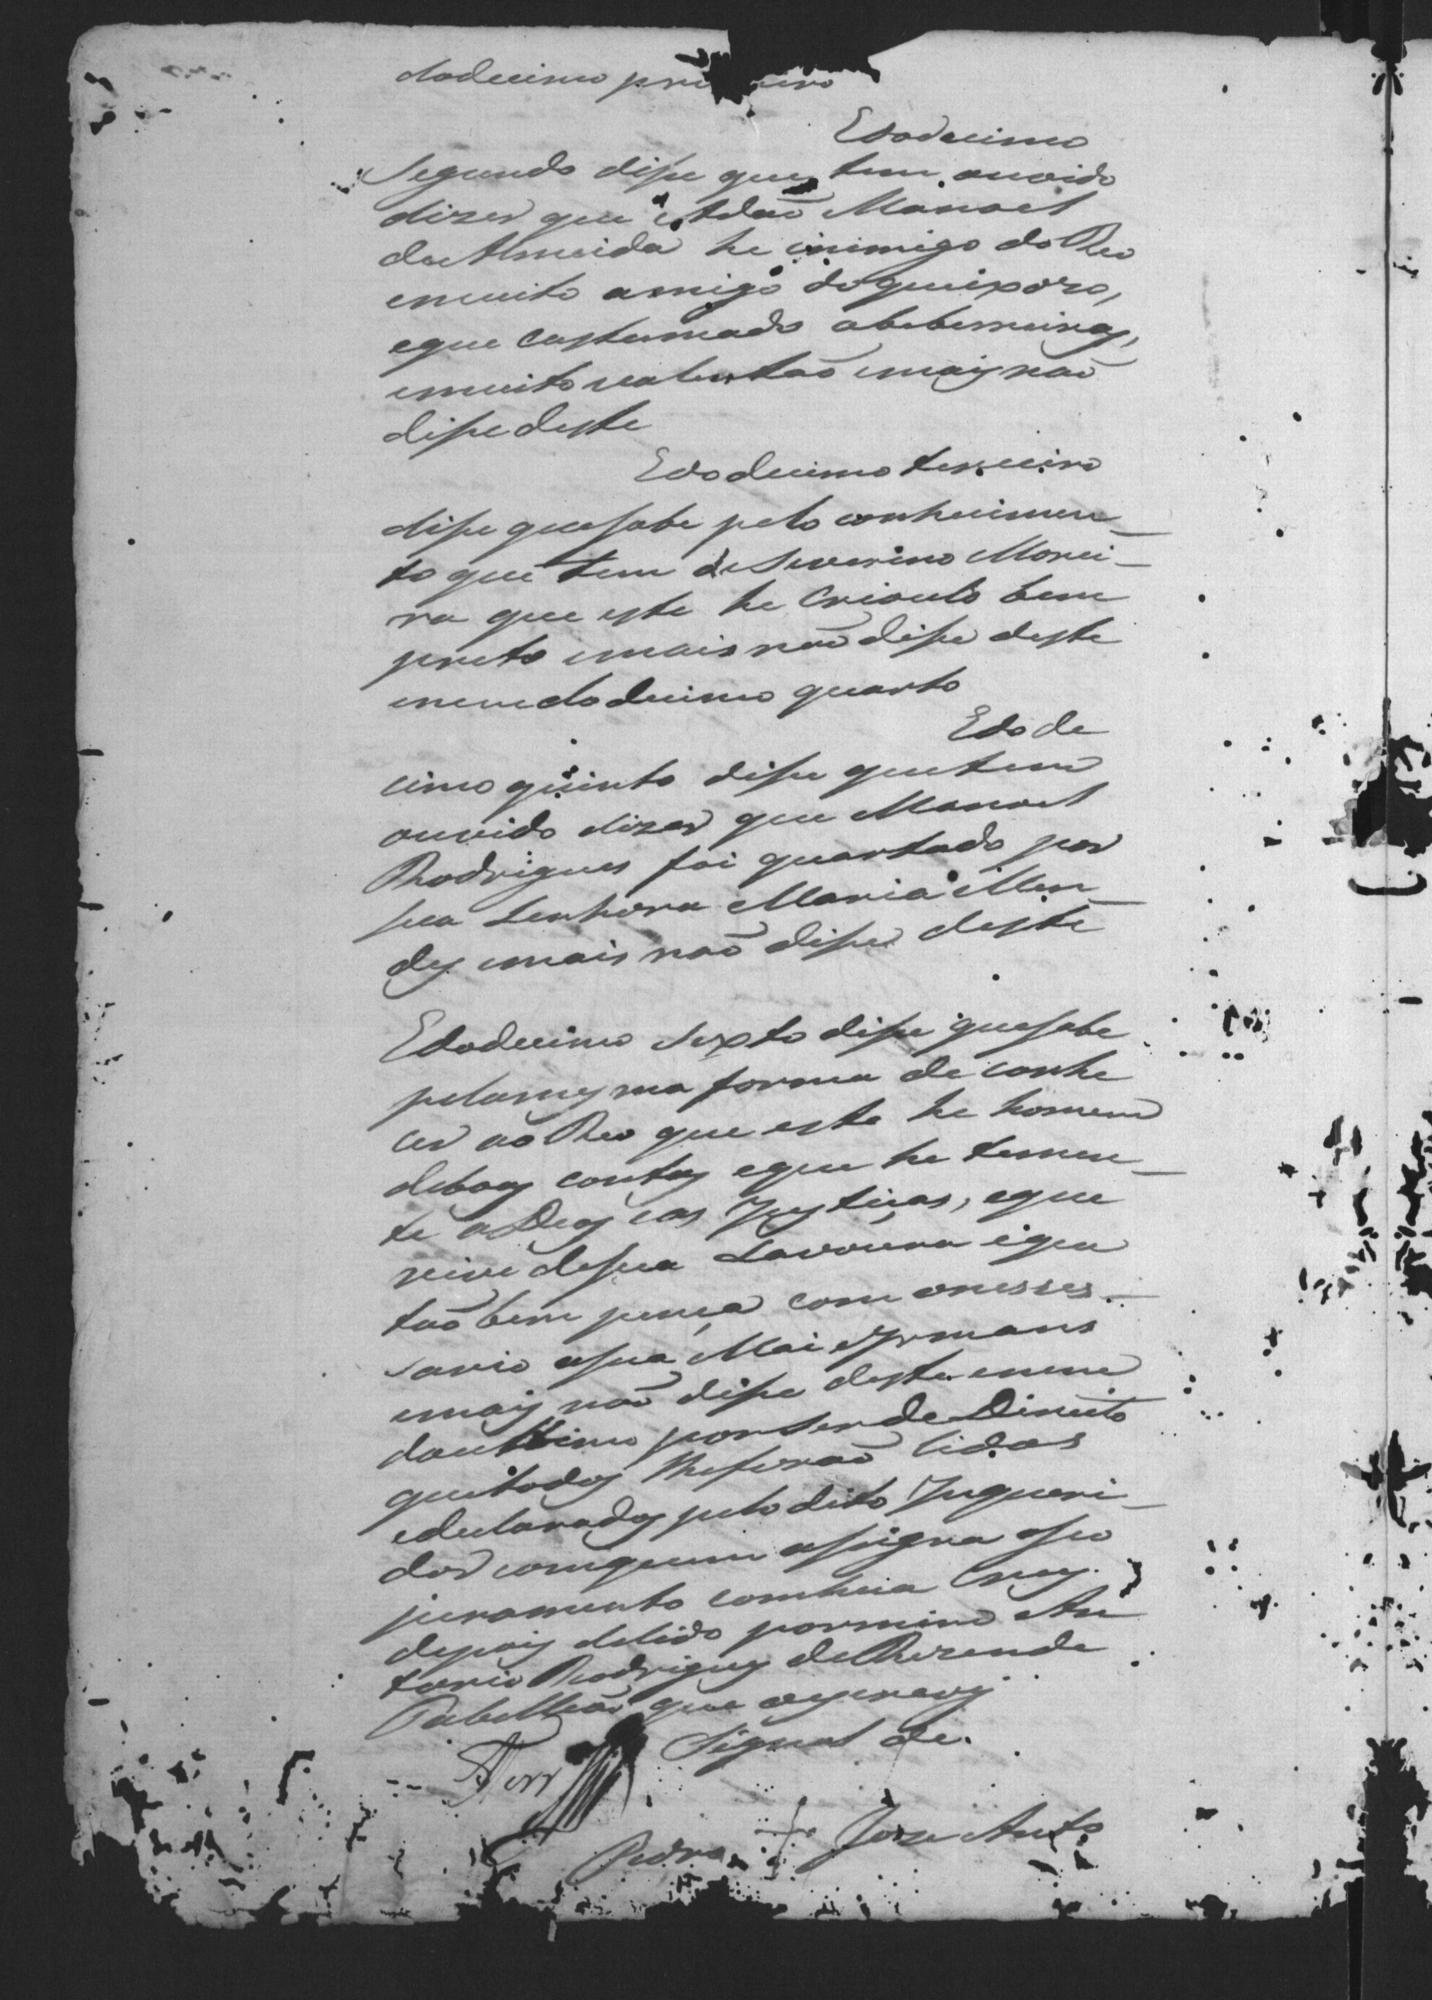 dodecimo primeiro
Edodecimo
segundo disse que tem ouvido
dizer que Adaõ Manoel
de Almeida he inimigo do Reo
emuito amigo doqueixozo,
eque custumado abeberreiras,
emuito valentaõ emais naõ
disse deste
Edo decimo terceiro
disse quesabe pelo conhecimen-
to que tem de Severino Morei-
ra que este he Crioulo bem
preto emais naõ disse deste
enem dodecimo quarto
Edo de
cimo quinto disse quetem
ouvido dizer que Manoel
Rodrigues foi quartado por
sua Senhora Maria Men-
des emais naõ disse deste
Edodecimo sexto disse quesabe
pelamesma forma de conhe
cer ao Reo que este he homem
deboas contas eque he temen-
te a Deos eas Justicas, eque
vive desua Lavoura eque
taõbem pença com onesses-
sario asua Mai eIrmans
emais naõ disse deste enem
doultimo porserde Direito
quetodos lheforaõ lidos
edeclarados pelo dito Inqueri-
dor comquem assigna oseo
juramento comhua Crus
depois delido pormim An
tonio Rodrigues deRezende
Tabelliaõ que oescrevy
Signal de
Ferr
Pedro + Joze Anto